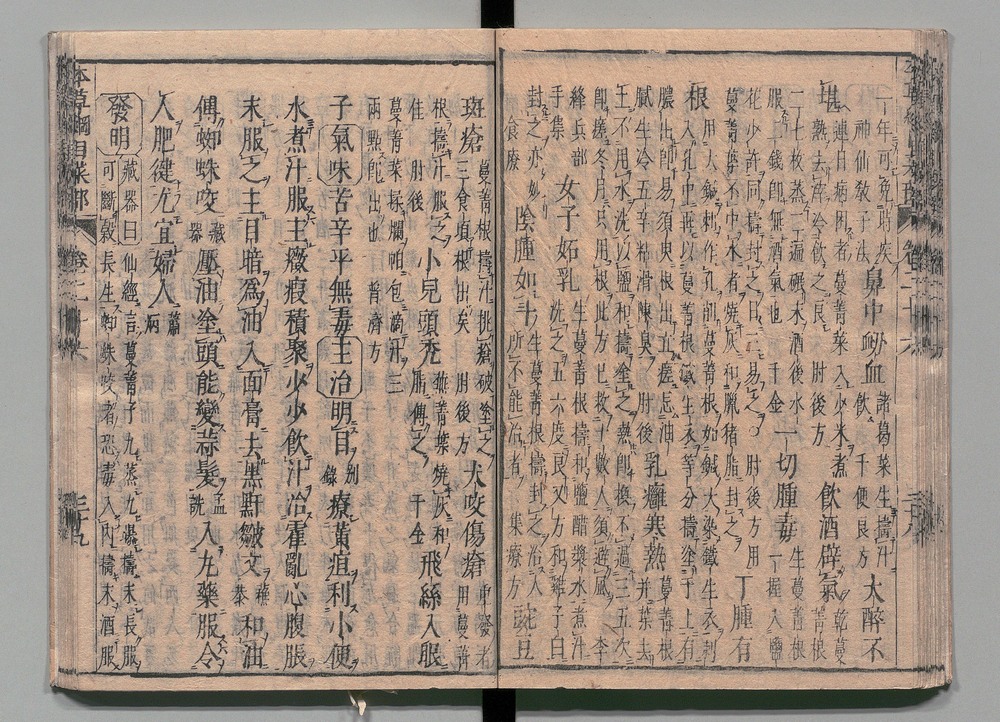 一年可免時疾 神仙教子法 鼻中衄血 諸葛菜生擣汁飲 千便良方 大醉不
堪 連日病困者蔓菁菜入少米煮熟去滓冷飲之良 肘後方 飲酒辟氣 乾蔓菁根
二七枚蒸三遍碾末酒後水服二錢即無酒氣也 千金 一切腫毒 生蔓菁根一握入鹽
花少許同擣封之日三易之 肘後方用蔓菁葉不中水者燒灰和臘猪脂封之 丁腫有
根 用大鍼刺作孔削蔓菁根如鍼大染鐵生衣刺入孔中再以蔓菁根鐵生衣等分擣塗于上有
膿出即易須臾根出立瘥忌油膩生冷五辛粘滑陳臭 肘後 乳癰寒熱 蔓菁根并葉去
土不用水洗以鹽和擣塗之熱即換不過三五次即瘥冬月只用根此方已救十數人須避風 李
絳兵部手集 女子妬乳 生蔓菁根擣和鹽醋漿水煮汁洗之五六度良又方和雞子白
封之亦妙 食療 陰腫如斗 生蔓菁根擣封之治人所不能治者 集療方 豌豆
斑瘡 蔓菁根擣汁挑瘡破塗之三食頃根出矣 肘後方 犬咬傷瘡 重發者用蔓菁
根擣汁服之 肘後 小兒頭禿 蕪菁葉燒灰和脂傅之 千金 飛絲入眼
蔓菁菜揉爛帕包滴汁三兩點即出也 普濟方
子氣味苦辛平無毒主治明目 別錄 療黃疸利小便
水煮汁服主癥瘕積聚少少飲汁治霍亂心腹脹
末服之主目暗爲油入面膏去黑䵟皺文 蘇恭 和油
傅蜘蛛咬 藏器 壓油塗頭能變蒜髮 孟詵 入丸藥服令
人肥健尤宜婦人 蕭炳
發明 藏器曰仙經言蔓菁子九蒸九曝擣末長服可斷穀長生蜘蛛咬者恐毒入內擣末酒服
本草綱目菜部 卷之二十六 三十九